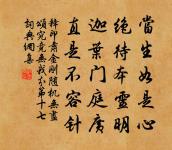 當生如是心
絶待本靈明
迦葉門庭廣
直是不容針
釋印肅金剛隨機無盡
頌究竟無我分第十七
詞典網集